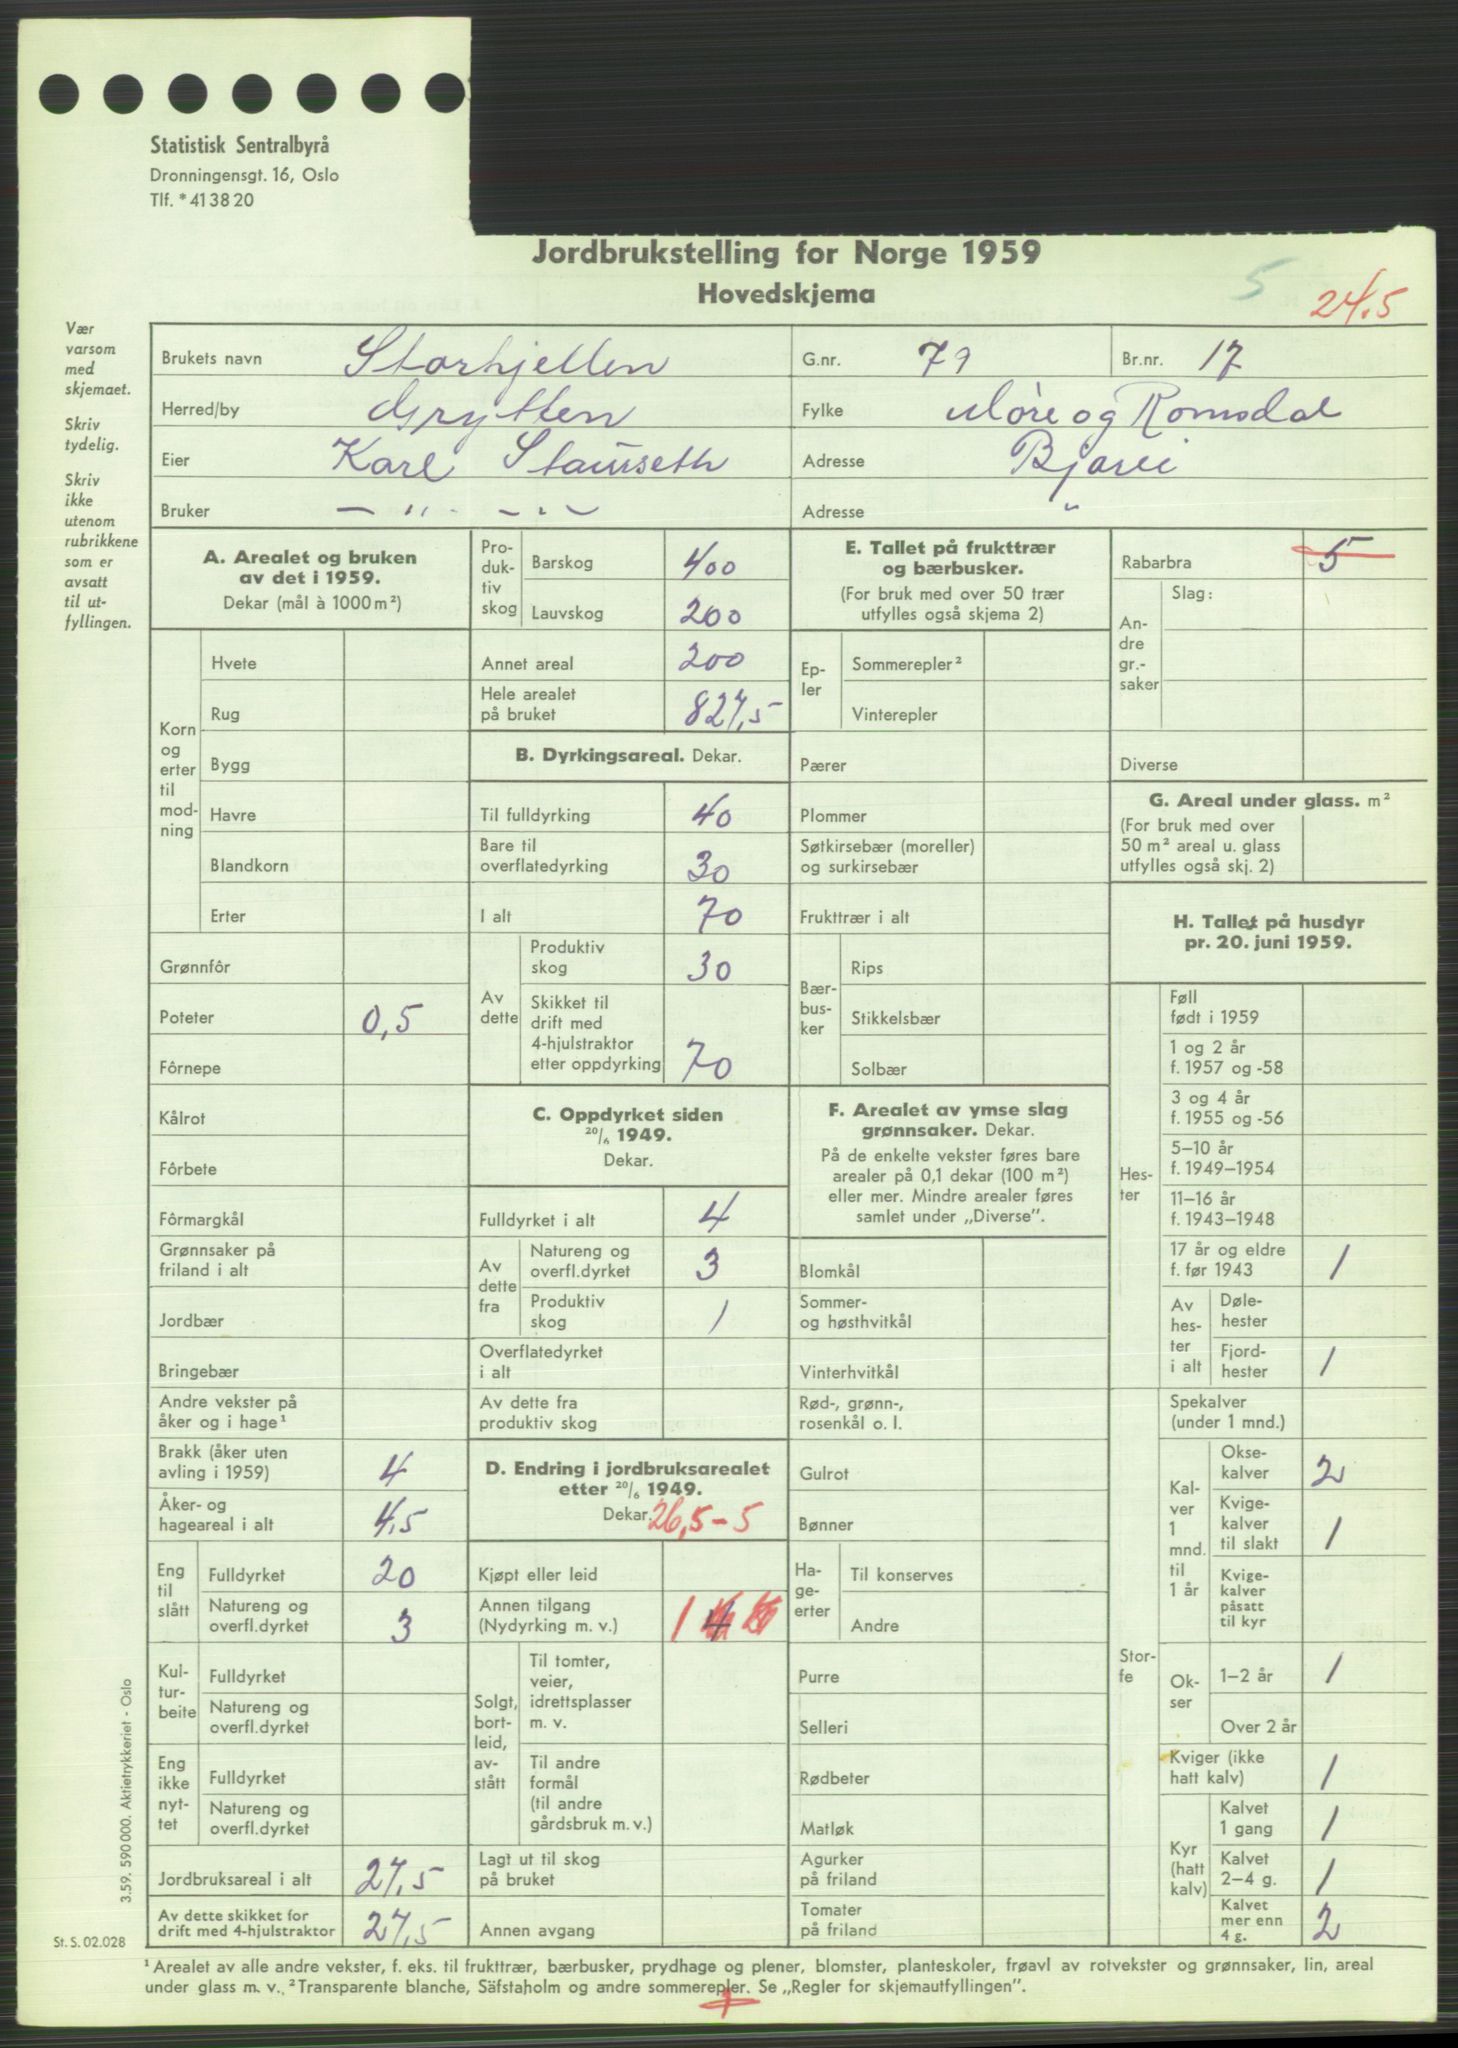 Statistisk Sentralbyrå
Dronningensgt. 16, Oslo
Tlf. * 41 38 20
Jordbrukstelling for Norge 1959
Hovedskjema
5
24.5
Vær
varsom
med
skjemaet.
Skriv
tydelig.
Skriv
ikke
utenom
rubrikkene
som er
avsatt
til ut-
fyllingen.
Brukets navn Storhjellen G.nr. 79 Br.nr. 17
Herred/by Grytten Fylke Møre og Romsdal
Eier Karl Stavseth Adresse
Bruker — „ — — „ — Adresse „
A. Arealet og bruken
av det i 1959.
Dekar (mål à 1000 m²)
Korn
og
erter
til
mod-
ning
Hvete
Rug
Bygg
Havre
Blandkorn
Erter
Grønnfôr
Poteter 0,5
Fôrnepe
Kålrot
Fôrbete
Fôrmargkål
Grønnsaker på
friland i alt
Jordbær
Bringebær
Andre vekster på
åker og i hage¹
Brakk (åker uten
avling i 1959) 4
Åker- og
hageareal i alt 4,5
Eng
til
slått
Fulldyrket 20
Natureng og
overfl.dyrket 3
Kul-
tur-
beite
Fulldyrket
Natureng og
overfl.dyrket
Eng
ikke
nyt-
tet
Fulldyrket
Natureng og
overfl.dyrket
Jordbruksareal i alt 27,5
Av dette skikket for
drift med 4-hjulstraktor 27,5
Pro-
duk-
tiv
skog
Barskog 400
Lauvskog 200
Annet areal 200
Hele arealet
på bruket 827,5
B. Dyrkingsareal. Dekar.
Til fulldyrking 40
Bare til
overflatedyrking 30
I alt 70
Av
dette
Produktiv
skog 30
Skikket til
drift med
4-hjulstraktor
etter oppdyrking 70
C. Oppdyrket siden
20/6 1949.
Dekar.
Fulldyrket i alt 4
Av
dette
fra
Natureng og
overfl.dyrket 3
Produktiv
skog 1
Overflatedyrket
i alt
Av dette fra
produktiv skog
D. Endring i jordbruksarealet
etter 20/6 1949.
Dekar. 26,5 – 5
Kjøpt eller leid
Annen tilgang
(Nydyrking m. v.) 1 4
Solgt,
bort-
leid,
av-
stått
Til tomter,
veier,
idrettsplasser
m. v.
Til andre
formål
(til andre
gårdsbruk m. v.)
Lagt ut til skog
på bruket
Annen avgang
E. Tallet på frukttrær
og bærbusker.
(For bruk med over 50 trær
utfylles også skjema 2)
Ep-
ler
Sommerepler²
Vinterepler
Pærer
Plommer
Søtkirsebær (moreller)
og surkirsebær
Frukttrær i alt
Bær-
bus-
ker
Rips
Stikkelsbær
Solbær
F. Arealet av ymse slag
grønnsaker. Dekar.
På de enkelte vekster føres bare
arealer på 0,1 dekar (100 m²)
eller mer. Mindre arealer føres
samlet under „Diverse”.
Blomkål
Sommer-
og høsthvitkål
Vinterhvitkål
Rød-, grønn-,
rosenkål o. l.
Gulrot
Bønner
Ha-
ge-
erter
Til konserves
Andre
Purre
Selleri
Rødbeter
Matløk
Agurker
på friland
Tomater
på friland
Rabarbra 5
An-
dre
gr.-
saker
Slag:
Diverse
G. Areal under glass. m²
(For bruk med over
50 m² areal u. glass
utfylles også skj. 2)
H. Tallet på husdyr
pr. 20. juni 1959.
Hes-
ter
Føll
født i 1959
1 og 2 år
f. 1957 og -58
3 og 4 år
f. 1955 og -56
5–10 år
f. 1949–1954
11–16 år
f. 1943–1948
17 år og eldre
f. før 1943 1
Av
hes-
ter
i alt
Døle-
hester
Fjord-
hester 1
Stor-
fe
Spekalver
(under 1 mnd.)
Kal-
ver
1
mnd.
til
1 år
Okse-
kalver 2
Kvige-
kalver
til slakt 1
Kvige-
kalver
påsatt
til kyr
Ok-
ser
1–2 år 1
Over 2 år
Kviger (ikke
hatt kalv) 1
Kyr
(hatt
kalv)
Kalvet
1 gang 1
Kalvet
2–4 g. 1
Kalvet
mer enn
4 g. 2
3.59. 590 000. Aktietrykkeriet - Oslo
St. S. 02.028
¹ Arealet av alle andre vekster, f. eks. til frukttrær, bærbusker, prydhage og plener, blomster, planteskoler, frøavl av rotvekster og grønnsaker, lin, areal
under glass m. v. ² Transparente blanche, Säfstaholm og andre sommerepler. Se „Regler for skjemautfyllingen”.